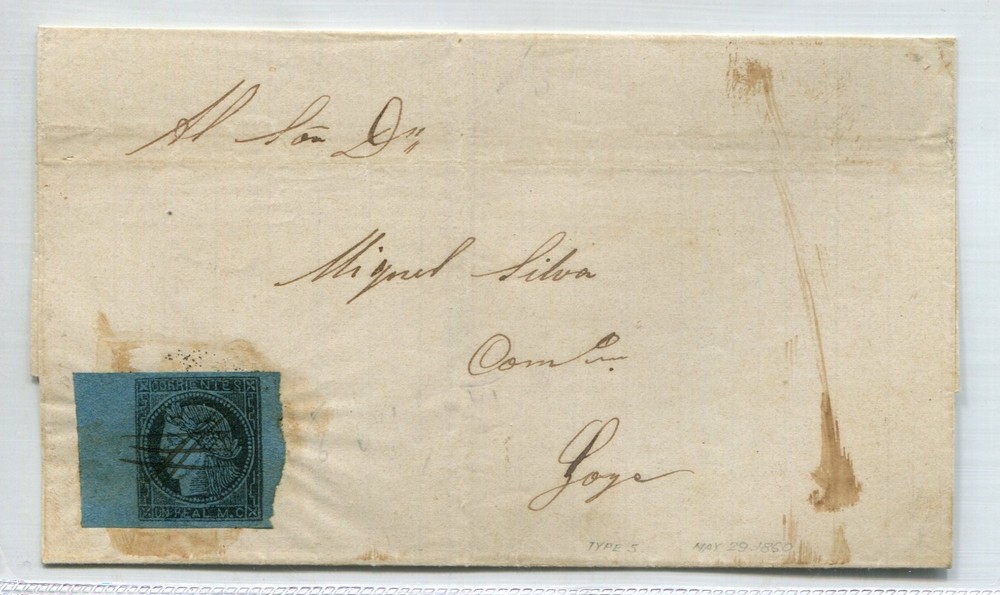 Al Sōn Dn
Miguel Silva
Com Ln
Goya
CORRIENTES
UN REAL M.C.
TYPE 5
MAY 29.1860